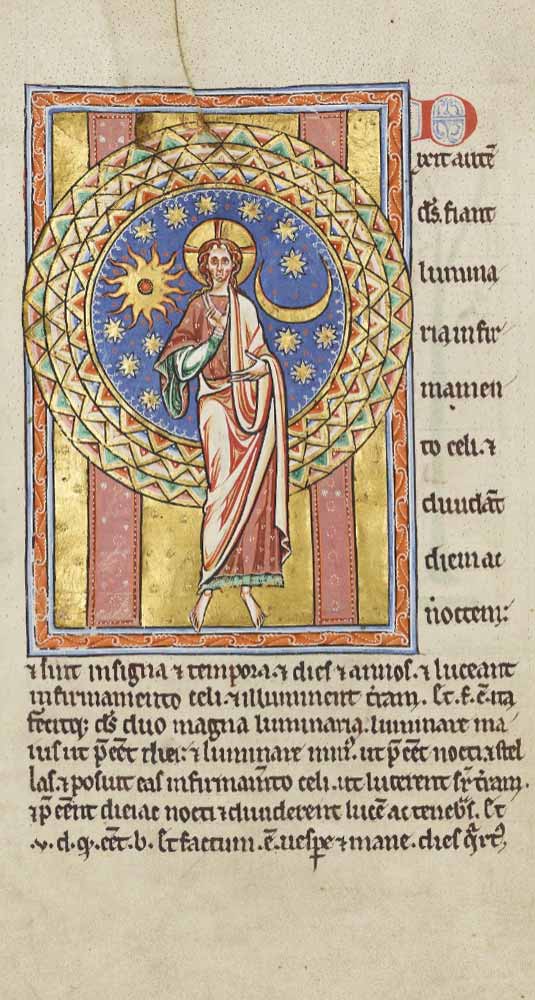 D
ixit autē
dš. fiant
lumina
ria in fir
mamen
to celi. ⁊
diuidāt
diem ac
noctem:
⁊ sint in signa ⁊ tempora. ⁊ dies ⁊ annos. ⁊ luceant
in firmamento celi. ⁊ illuminent t̄ram. Et. f. ē. ita
fecitq; dš duo magna luminaria. luminare ma
ius ut p̄eēt diei: ⁊ luminare min᷒. ut p̄eēt nocti. ⁊ stel
las. ⁊ posuit eas in firmam̄to celi. ut lucerent sr̄ t̄ram.
⁊ p̄eēnt diei ac nocti ⁊ diuiderent lucē ac tenebˢ. Et
.v. d. q. eēt. b. Et factum. ē. uespe ⁊ mane. dies q̄rt᷒